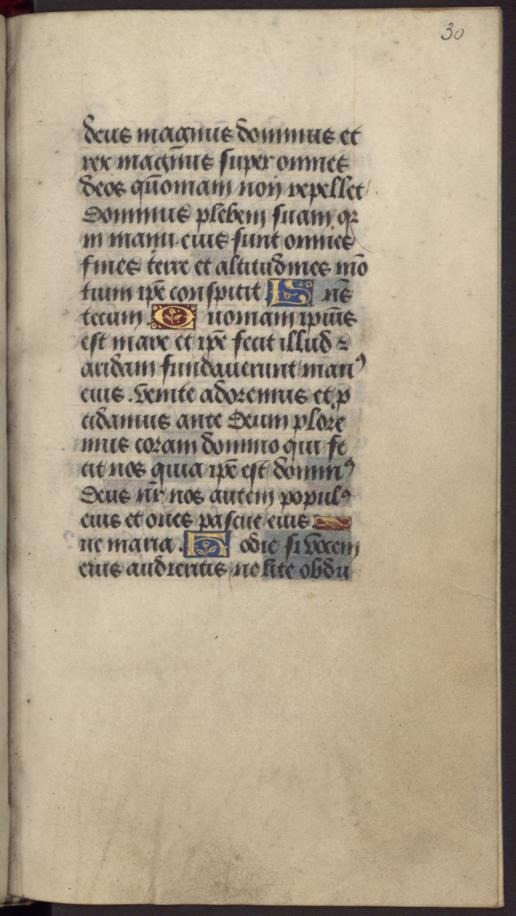 30
deus magnus dominus et
rex magnus super omnes
deos quoniam non repellet
dominus plebem suam qr
in manu eius sunt omnes
fines terre et altitudines mō
tium ipē conspicit D n̄s
tecum Q uoniam ipius
est mare et ipē fecit illud ⁊
aridam fundauerunt manꝰ
eius . venite adoremus et p
cidamus ante deum plore
mus coram domino qui fe
cit nos quia ipē est dominꝰ
deus nr̄ nos autem populꝰ
eius et oues pascue eius
ue maria . H odie si vocem
eius audieritis nolite obdu